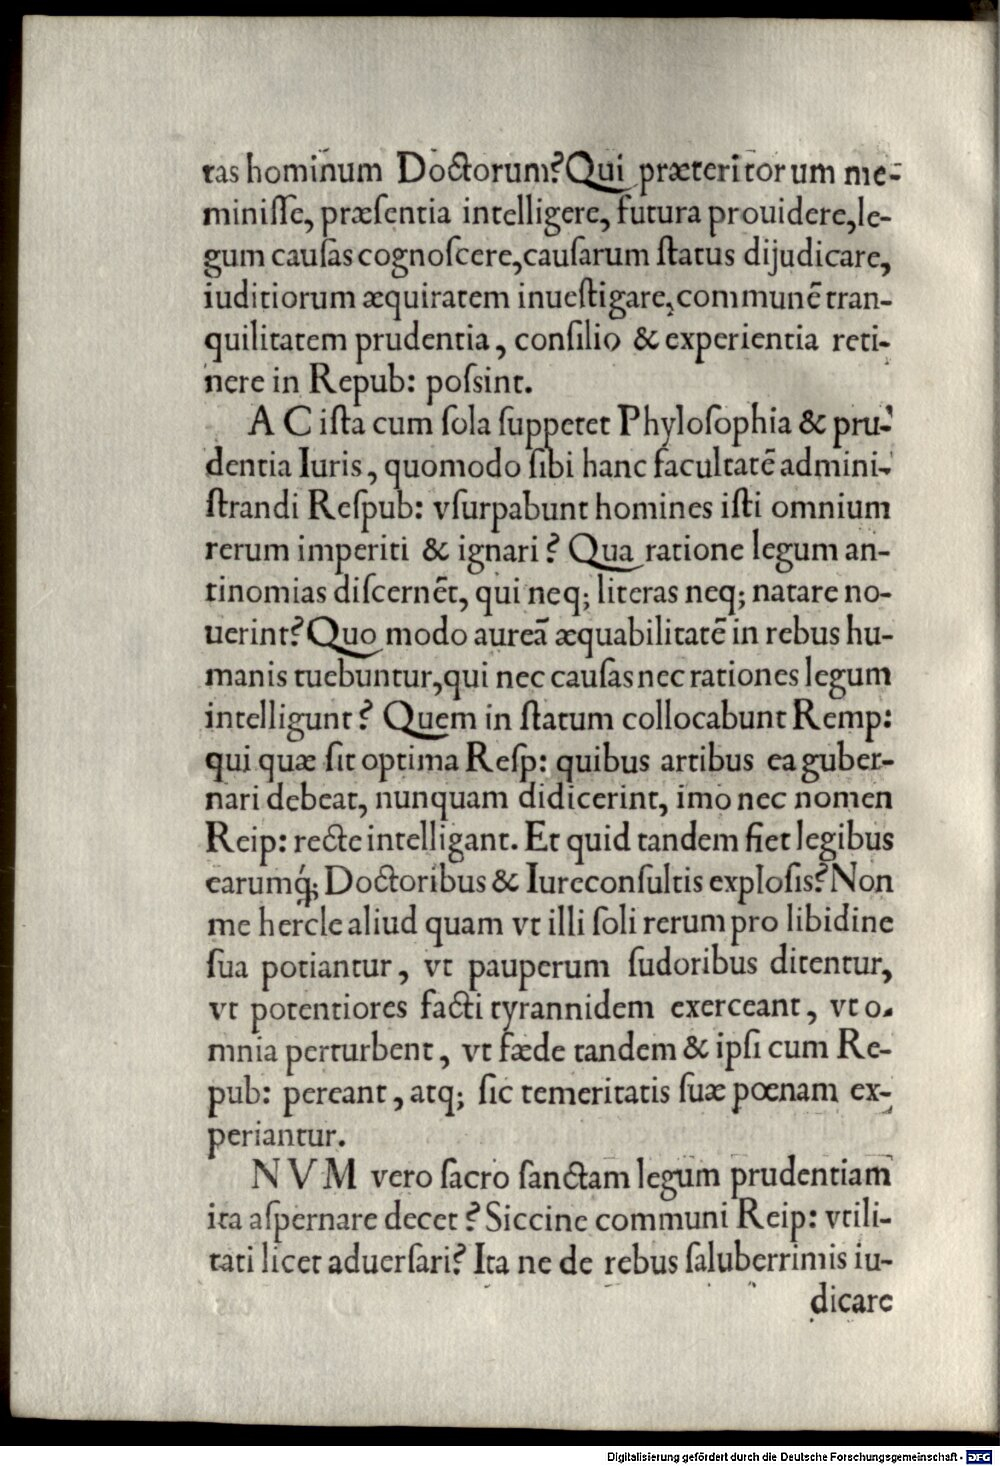 tas hominum Doctorum? Qui præteritorum me-
miniſſe, præſentia intelligere, futura prouidere, le-
gum cauſas cognoſcere, cauſarum ſtatus dijudicare,
iuditiorum æquitatem inueſtigare, communē tran-
quilitatem prudentia, conſilio & experientia reti-
nere in Repub: poſsint.
A C iſta cum ſola ſuppetet Phyloſophia & pru-
dentia Iuris, quomodo ſibi hanc facultatē admini-
ſtrandi Reſpub: vſurpabunt homines iſti omnium
rerum imperiti & ignari? Qua ratione legum an-
tinomias diſcernēt, qui neq; literas neq; natare no-
uerint? Quo modo aureā æquabilitatē in rebus hu-
manis tuebuntur, qui nec cauſas nec rationes legum
intelligunt? Quem in ſtatum collocabunt Remp:
qui quæ ſit optima Reſp: quibus artibus ea guber-
nari debeat, nunquam didicerint, imo nec nomen
Reip: recte intelligant. Et quid tandem fiet legibus
earumq́; Doctoribus & Iureconſultis exploſis? Non
me hercle aliud quam vt illi ſoli rerum pro libidine
ſua potiantur, vt pauperum ſudoribus ditentur,
vt potentiores facti tyrannidem exerceant, vt o-
mnia perturbent, vt fæde tandem & ipſi cum Re-
pub: pereant, atq; ſic temeritatis ſuæ pœnam ex-
periantur.
N V M vero ſacro ſanctam legum prudentiam
ita aſpernare decet? Siccine communi Reip: vtili-
tati licet aduerſari? Ita ne de rebus ſaluberrimis iu-
dicare
Digitalisierung gefördert durch die Deutsche Forschungsgemeinschaft - DFG